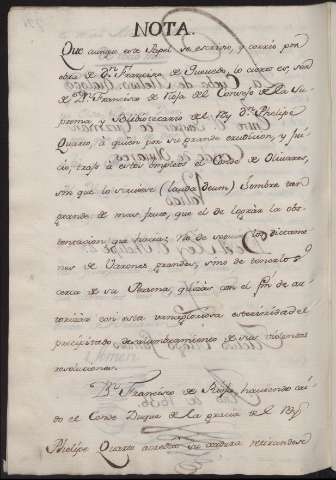 NOTA.
Que aunque este Papel se escrivio, y corrio por
obra de Dn. Francisco de Quevedo, lo cierto es, son
de Dn. Francisco de Rioja del Consejo de la Su-
prema, y Bibliotecario del Rey Dn. Phelipe
Quarto, à quien por su grande erudicion, y jui-
cio, trajo à estos empleos el Conde de Olivares,
sin que lo sacase hombre tan
grande de mas fruto, que el de lograr la obs-
tentacion que hacia, no de seguir los dictame-
nes de Varones grandes, sino de tenerlos
cerca de su Persona, quizàs con el fin de au-
torizar con esta exterioridad el
precipitado deslumbramiento de sus violentas
resoluciones.
Dn. Francisco de Rioja, haviendo caì-
do el Conde Duque de la gracia del Rey
Phelipe Quarto acreditò su cordura retirandose